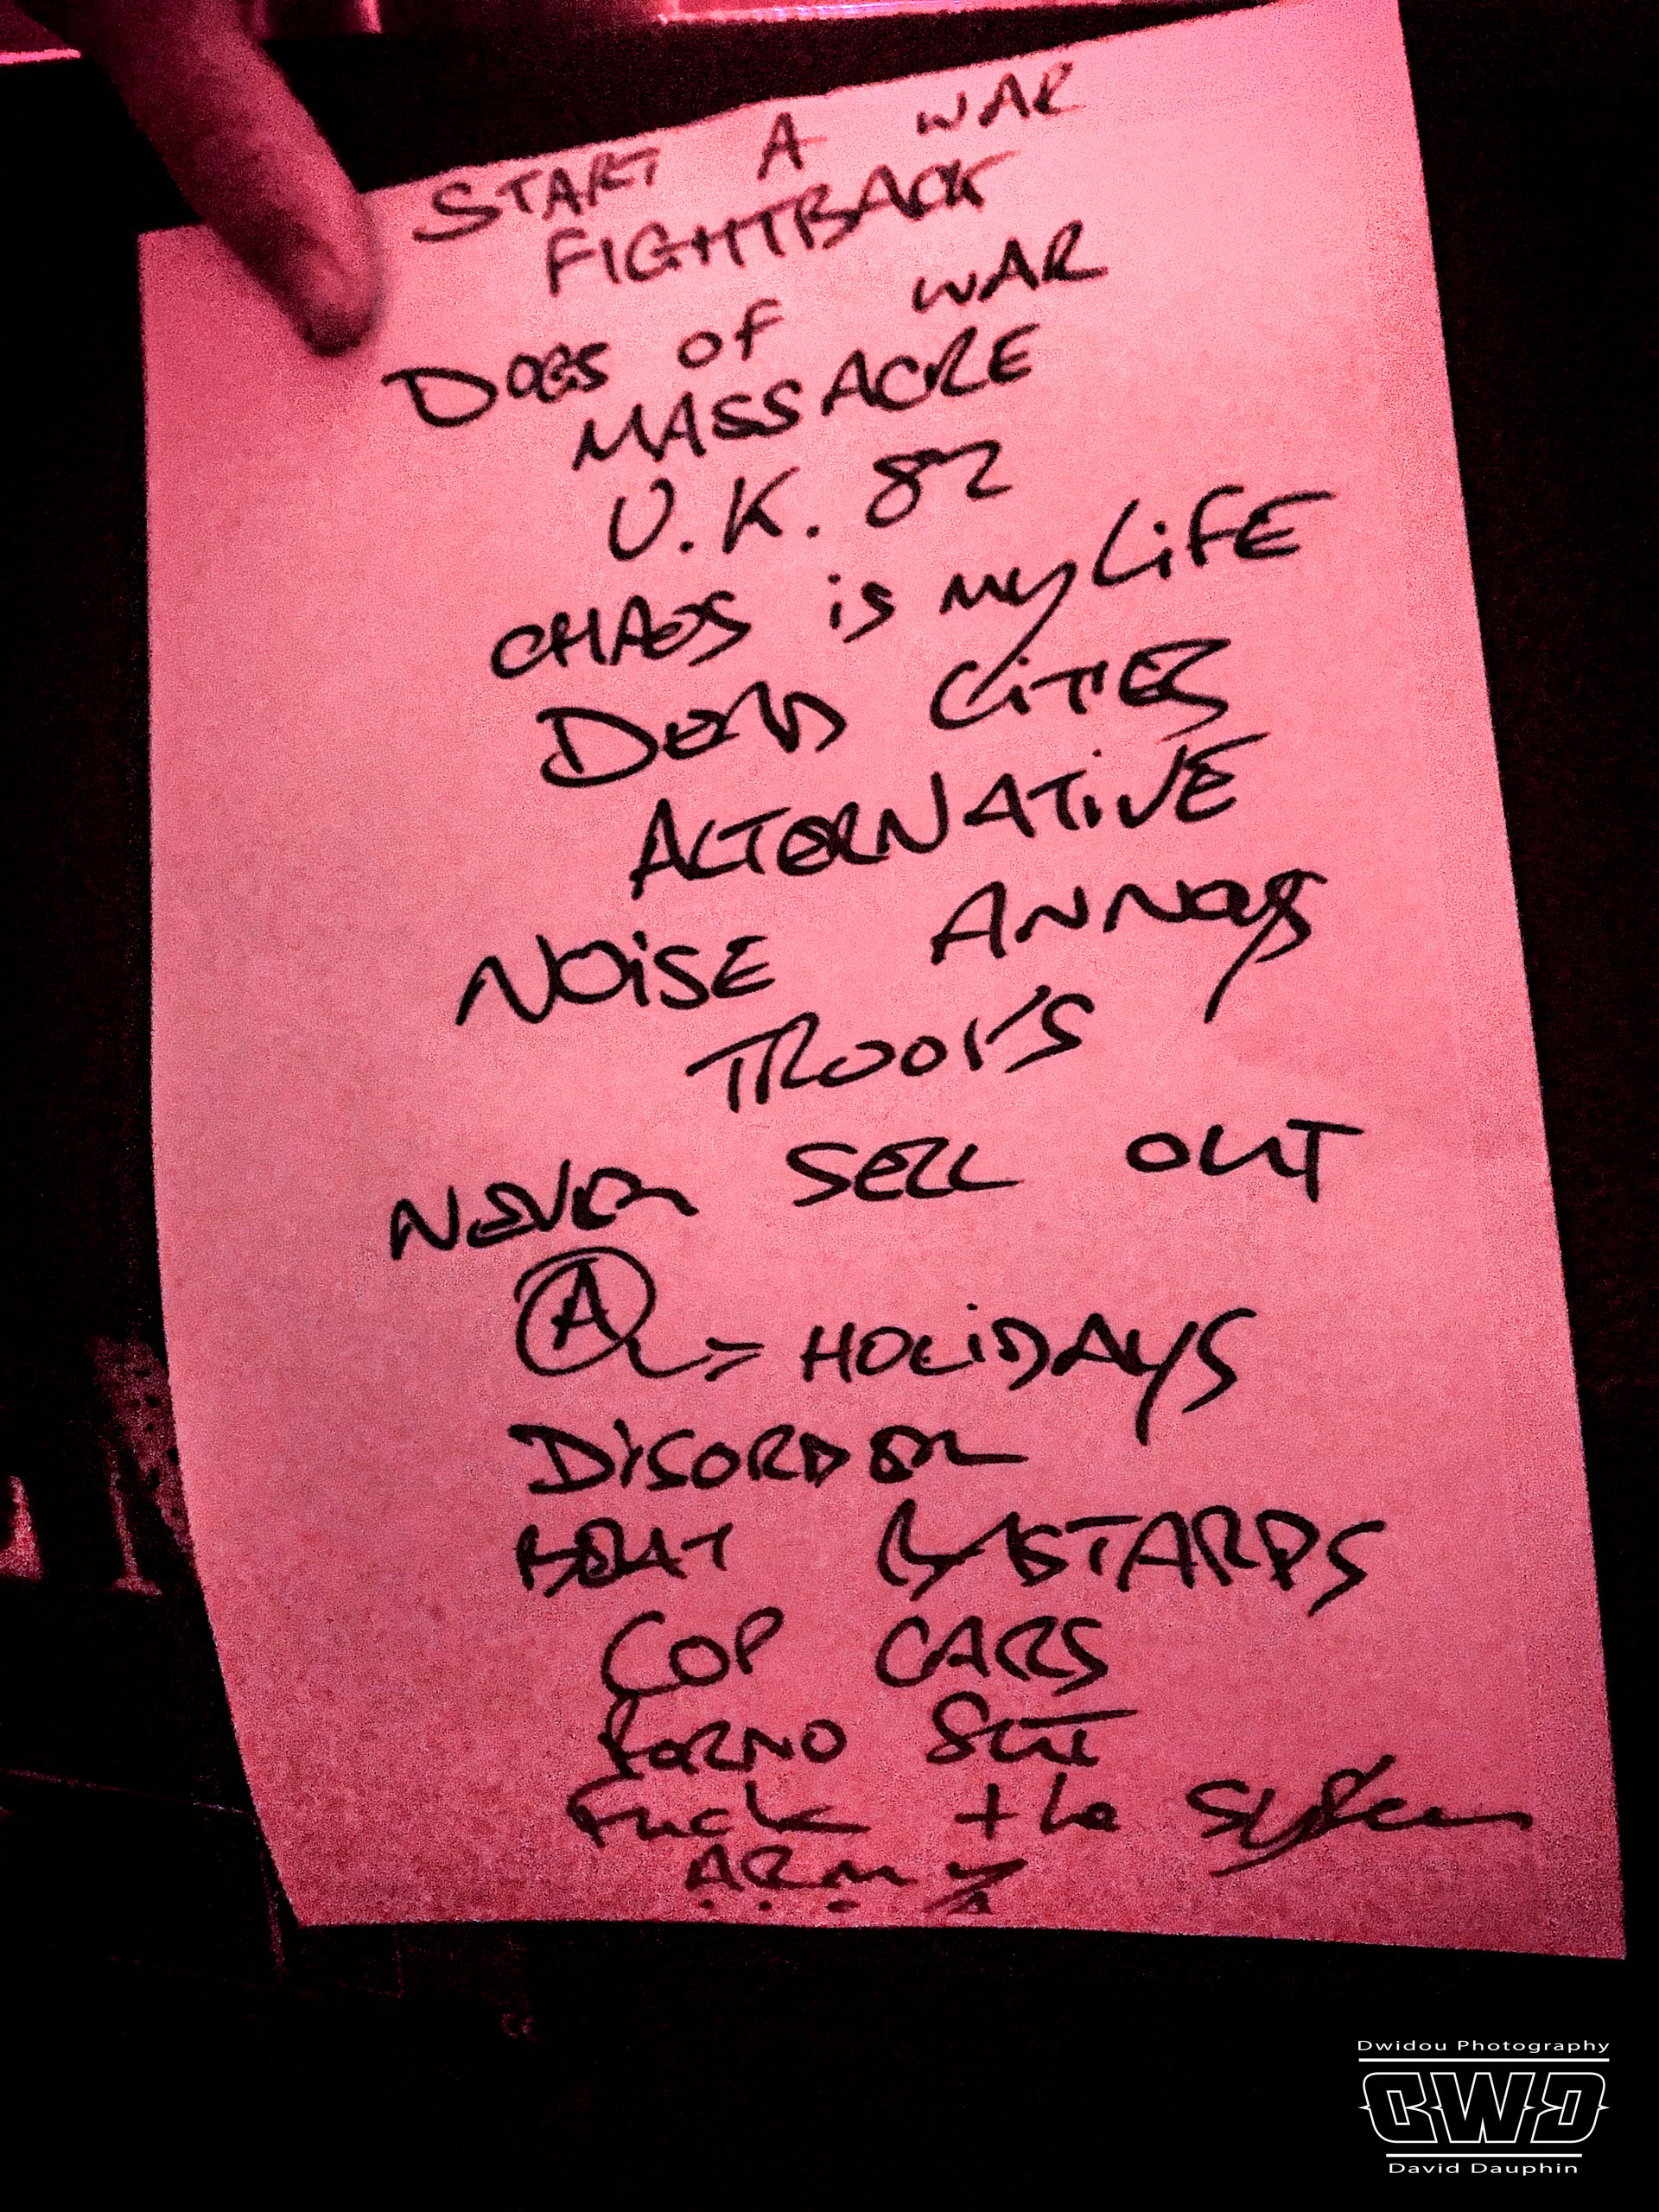 START A WAR
FIGHTBACK
DOGS OF WAR
MASSACRE
U.K. 82
CHAOS is my LiFE
DEAD CiTiES
ALTERNATiVE
NOiSE ANNOYS
TROOPS
NEVER SELL OUT
Ⓐ => HOLiDAYS
DISORDER
BEAT BASTARDS
COP CARS
PORNO SLUT
Fuck the System
ARMY
Dwidou Photography
DWD
David Dauphin